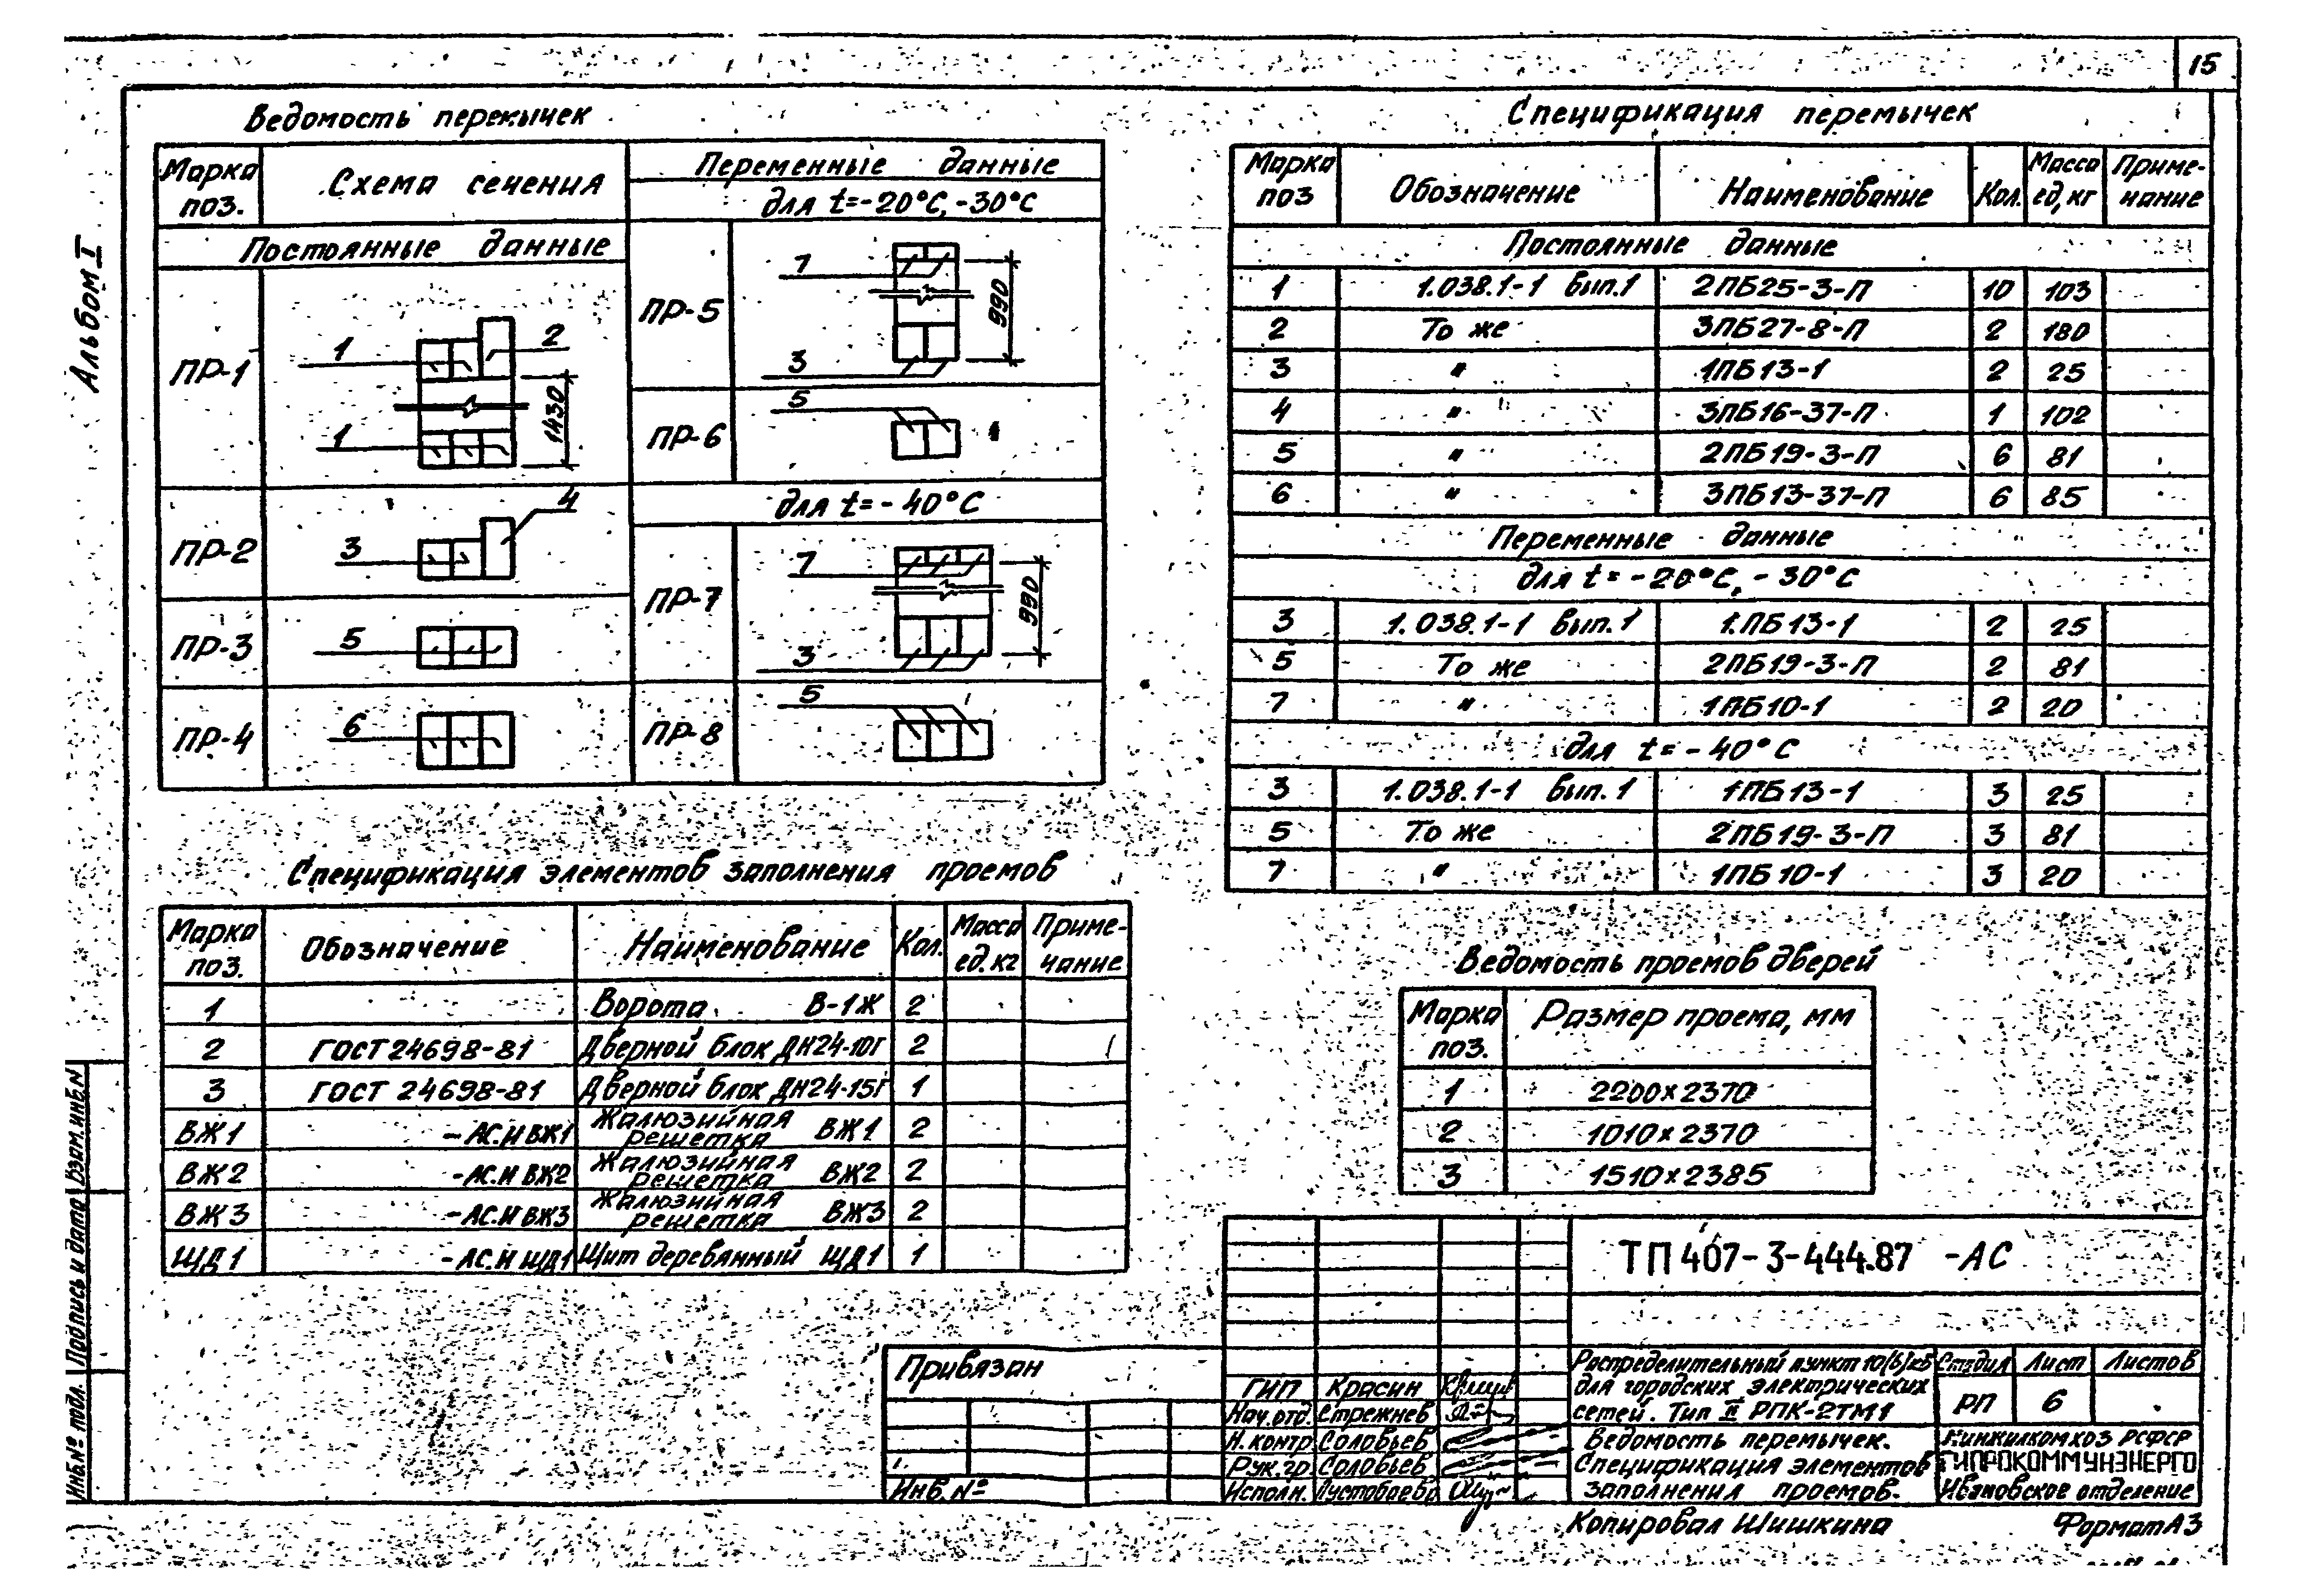 15
Альбом I
Ведомость перемычек
Марка поз.
Схема сечения
Переменные данные
для t=-20°С, -30°С
Постоянные данные
ПР-1
1
2
1430
1
ПР-2
3
4
ПР-3
5
ПР-4
6
ПР-5
7
990
3
ПР-6
5
для t=-40°С
ПР-7
7
990
3
ПР-8
5
Спецификация перемычек
Марка поз Обозначение Наименование Кол. Масса ед, кг Примечание
Постоянные данные
1 1.038.1-1 вып.1 2ПБ25-3-П 10 103
2 То же 3ПБ27-8-П 2 180
3 " 1ПБ13-1 2 25
4 " 3ПБ16-37-П 1 102
5 " 2ПБ19-3-П 6 81
6 " 3ПБ13-37-П 6 85
Переменные данные
для t=-20°С, -30°С
3 1.038.1-1 вып.1 1.ПБ13-1 2 25
5 То же 2ПБ19-3-П 2 81
7 " 1ПБ10-1 2 20
для t=-40°С
3 1.038.1-1 вып.1 1ПБ13-1 3 25
5 То же 2ПБ19-3-П 3 81
7 " 1ПБ10-1 3 20
Спецификация элементов заполнения проемов
Марка поз. Обозначение Наименование Кол. Масса ед. кг Примечание
1 Ворота В-1Ж 2
2 ГОСТ 24698-81 Дверной блок ДН24-10Г 2
3 ГОСТ 24698-81 Дверной блок ДН24-15Г 1
ВЖ1 -АС.И ВЖ1 Жалюзийная решетка ВЖ1 2
ВЖ2 -АС.И ВЖ2 Жалюзийная решетка ВЖ2 2
ВЖ3 -АС.И ВЖ3 Жалюзийная решетка ВЖ3 2
ЩД1 -АС.И ЩД1 Щит деревянный ЩД1 1
Ведомость проемов дверей
Марка поз. Размер проема, мм
1 2200×2370
2 1010×2370
3 1510×2385
ТП 407-3-444.87 -АС
Привязан
Инв. №
ГИП Красин
Нач. отд. Стрежнев
Н. контр Соловьев
Рук. гр. Соловьев
Исполн.
Распределительный пункт 10(6)кВ
для городских электрических
сетей. Тип II РПК-2ТМ1
Ведомость перемычек.
Спецификация элементов
заполнения проемов.
Стадия Лист Листов
РП 6
Минжилкомхоз РСФСР
ГИПРОКОММУНЭНЕРГО
Ивановское отделение
Копировал Шишкина
Формат А3
Инв.№ подл. Подпись и дата Взам.инв.N